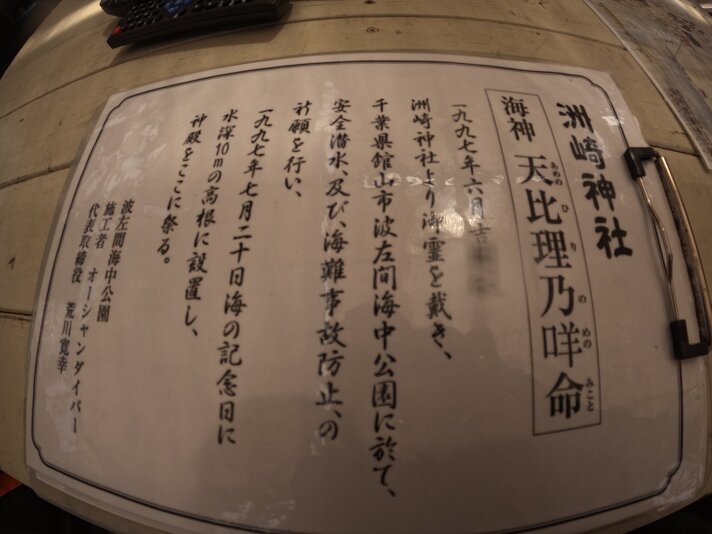 洲崎神社
海神 天比理乃咩命
あめの ひ り の めの みこと
一九九七年六月吉
洲崎神社より御霊を戴き、
千葉県館山市波左間海中公園に於て、
安全潜水、及び、海難事故防止、の
祈願を行い、
一九九七年七月二十日海の記念日に
水深10mの高根に設置し、
神殿をここに祭る。
波左間海中公園
施工者 オーシャンダイバー
代表取締役 荒川寛幸